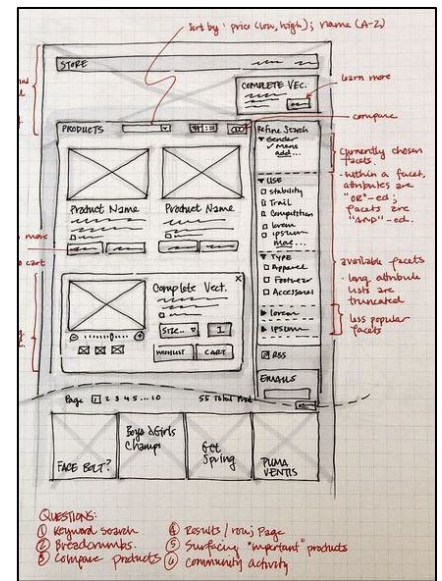 Sort by: price (low, high); name (A-Z)
STORE
COMPLETE VEC.
learn more
compare
PRODUCTS
Refine Search
Gender
Mens
add...
currently chosen
facets.
- within a facet,
attributes are
"OR"-ed;
facets are
"AND"-ed.
USE
Stability
Trail
Competition
lorem
ipsum
more...
Product Name
Product Name
more
cart
TYPE
Apparel
Footwear
Accessories
available facets
- long attribute
lists are
truncated
Complete Vect.
X
SIZE..
1
WISHLIST
CART
lorem
ipsum
less popular
facets
RSS
EMAILS
Page 1 2 3 4 5 ... 10
55 Total Prod
FACE BOLT?
Boys & Girls
Champs
Get
Spring
PUMA
VENTIS
QUESTIONS:
1 Keyword Search
2 Breadcrumbs.
3 Compare products
4 Results/row; Page
5 Surfacing "important" products
6 community activity